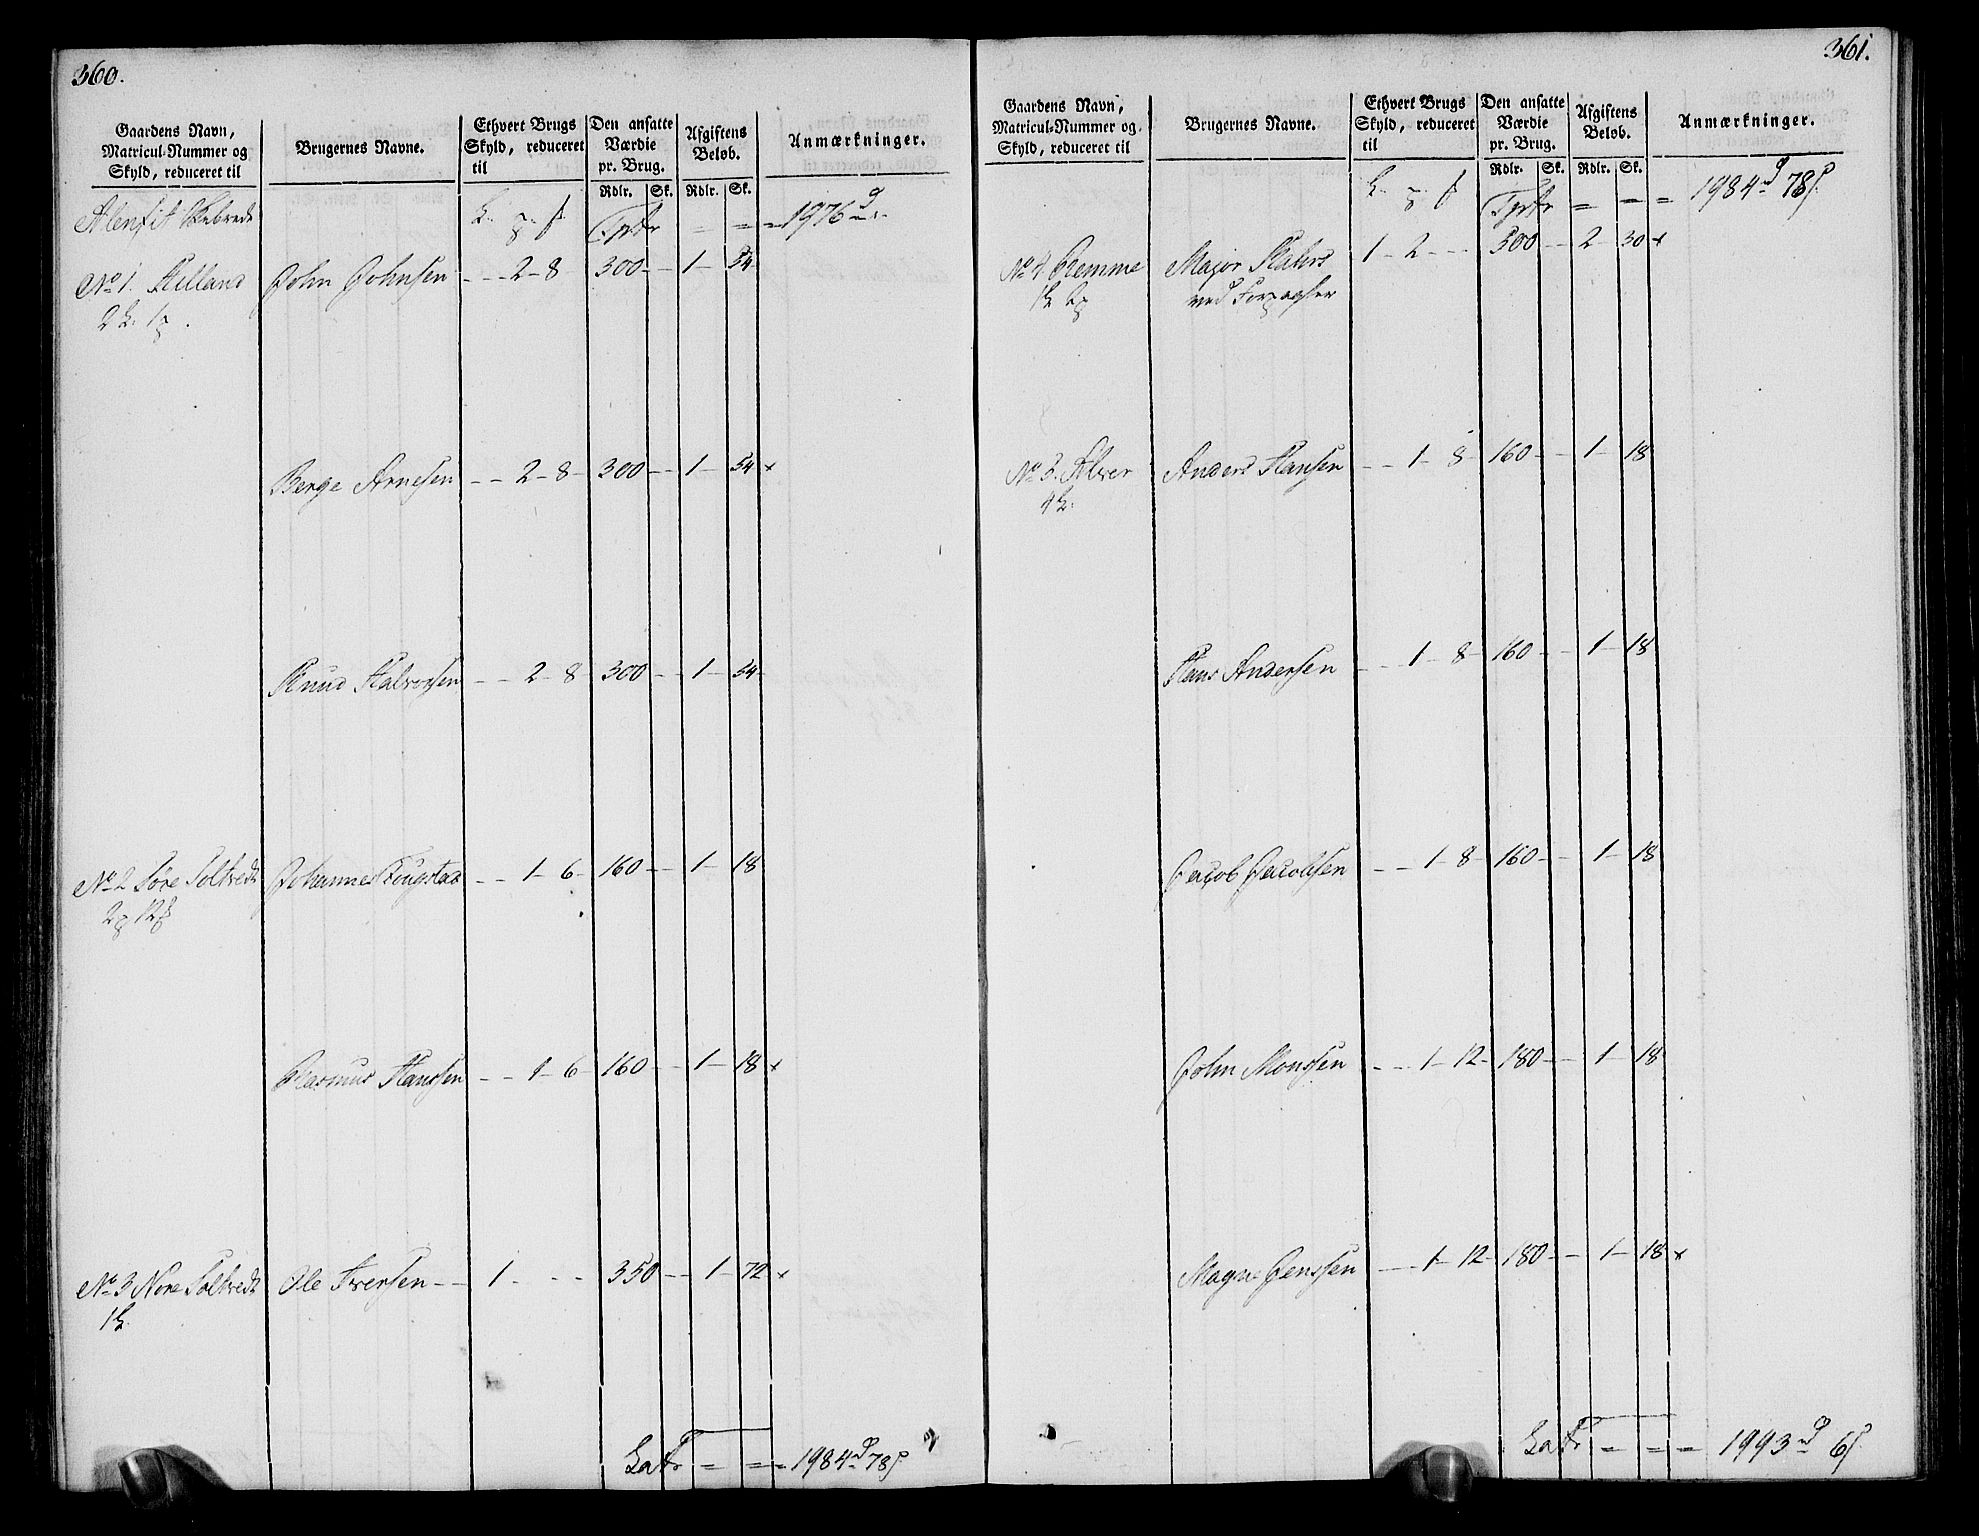 360.
Gaardens Navn, Matricul-Nummer og Skyld, reduceret til
Brugernes Navne.
Ethvert Brugs Skyld, reduceret til
Den ansatte Værdie pr. Brug.
Afgiftens Beløb.
Anmærkninger.
Rdlr. Sk. Rdlr. Sk.
Alenfit Skibrede
Tprtr = = = 1976
No 1. Killand John Johnsen - - 2 - 8 300 - - 1 - 54
Berge Arnesen - - 2 - 8 - 300 - - 1 - 54 x
Knud Halvorsen - - 2 - 8 300 - - 1 - 54
No 2 Søre Soltvedt Johannes Tougstad - - 1 - 6 - 160 - - 1 - 18
Rasmus Hanssen - - 1 - 6 160 - - 1 - 18 x
No 3 Nore Soltvedt Ole Iversen - - 1 - - - 350 - - 1 - 72 x
Latr = = = 1984 78
361.
Gaardens Navn, Matricul-Nummer og Skyld, reduceret til
Brugernes Navne.
Ethvert Brugs Skyld, reduceret til
Den ansatte Værdie pr. Brug.
Afgiftens Beløb.
Anmærkninger.
Rdlr. Sk. Rdlr. Sk.
Tprtr = = = 1984 78
No 4 Remme Major 1 - 2 - - - 500 - - 2 - 30 x
ved Forpagter
No 5. Alver Anders Hansen - - 1 - 8 - 160 - - 1 - 18
Hans Andersen - - 1 - 8 - 160 - - 1 - 18
Jacob Jacobsen - - 1 - 8 - 160 - - 1 - 18
John Monssen - - 1 - 12 - 180 - - 1 - 18
Magne Jenssen - - 1 - 12 - 180 - - 1 - 18 x
Latr = = = 1993 6